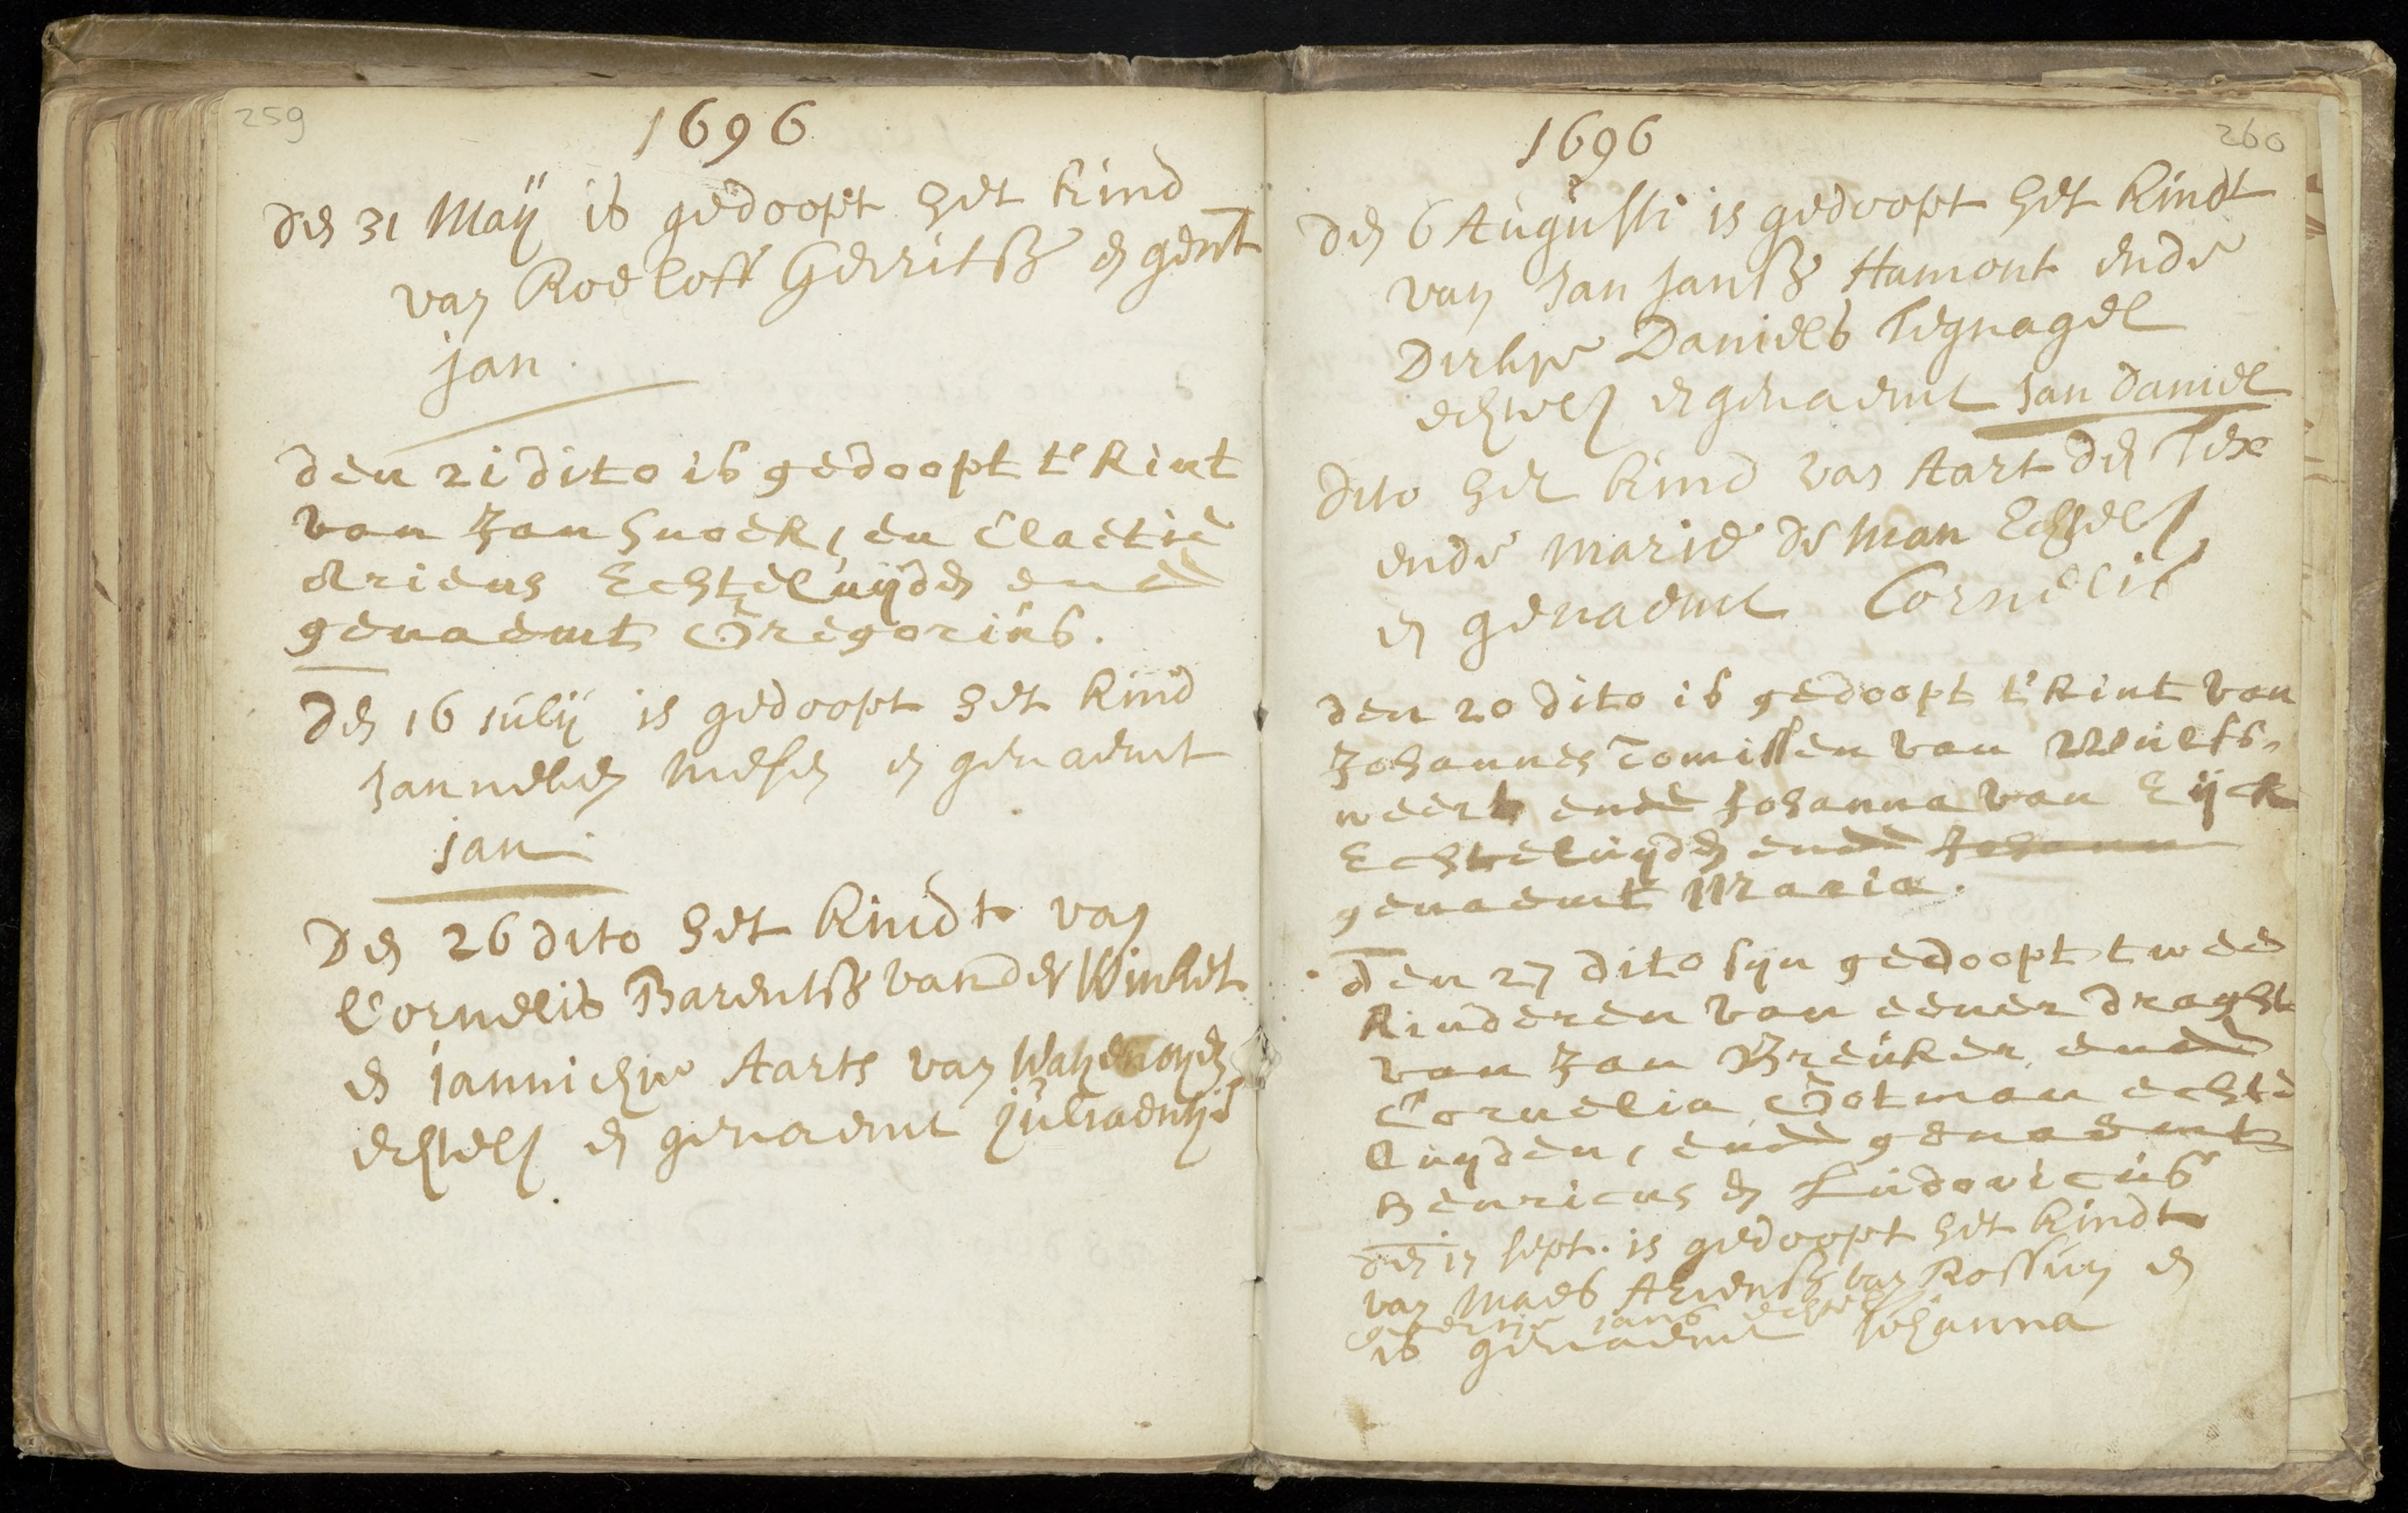 259
1696
den 31 Maij is gedoopt het kind
van Roeloff Gerritsz en gent
jan
den 21 dito is gedoopt t'kint
van Jan Snoek, en Claetie
Ariens Echteluijden ende
genaemt Gregorius.
Den 16 julij is gedoopt het kind
Janneken en genaemt
jan
Den 26 dito het kindt van
Cornelis Barentsz vander Winket
en jannichje Aarts van
echtel en genaemt
260
1696
Den 6 Augusti is gedoopt het kindt
van Jan Jansz Hamont ende
Dirkje Daniels Tegnagel
echtel en genaemt Jan Daniel
Dito het kind van Aart den Tex
ende Marie de Man Echtel
en genaemt Cornelis
den 20 dito is gedoopt t'kint van
Johannes Tomissen van Wulfs,
weert ende Johanna van Eijck
Echteluijden ende Johann
genaemt Maria.
Den 27 dito sijn gedoopt twee
kinderen van eener draght
van Jan Breuker ende
Cornelia Gotman echte
luijden, ende genaemt
Henricus en Ludovicus
den 17 sept. is gedoopt het kindt
van Maes van Rossum en
jans echtel
is genaemt Johanna